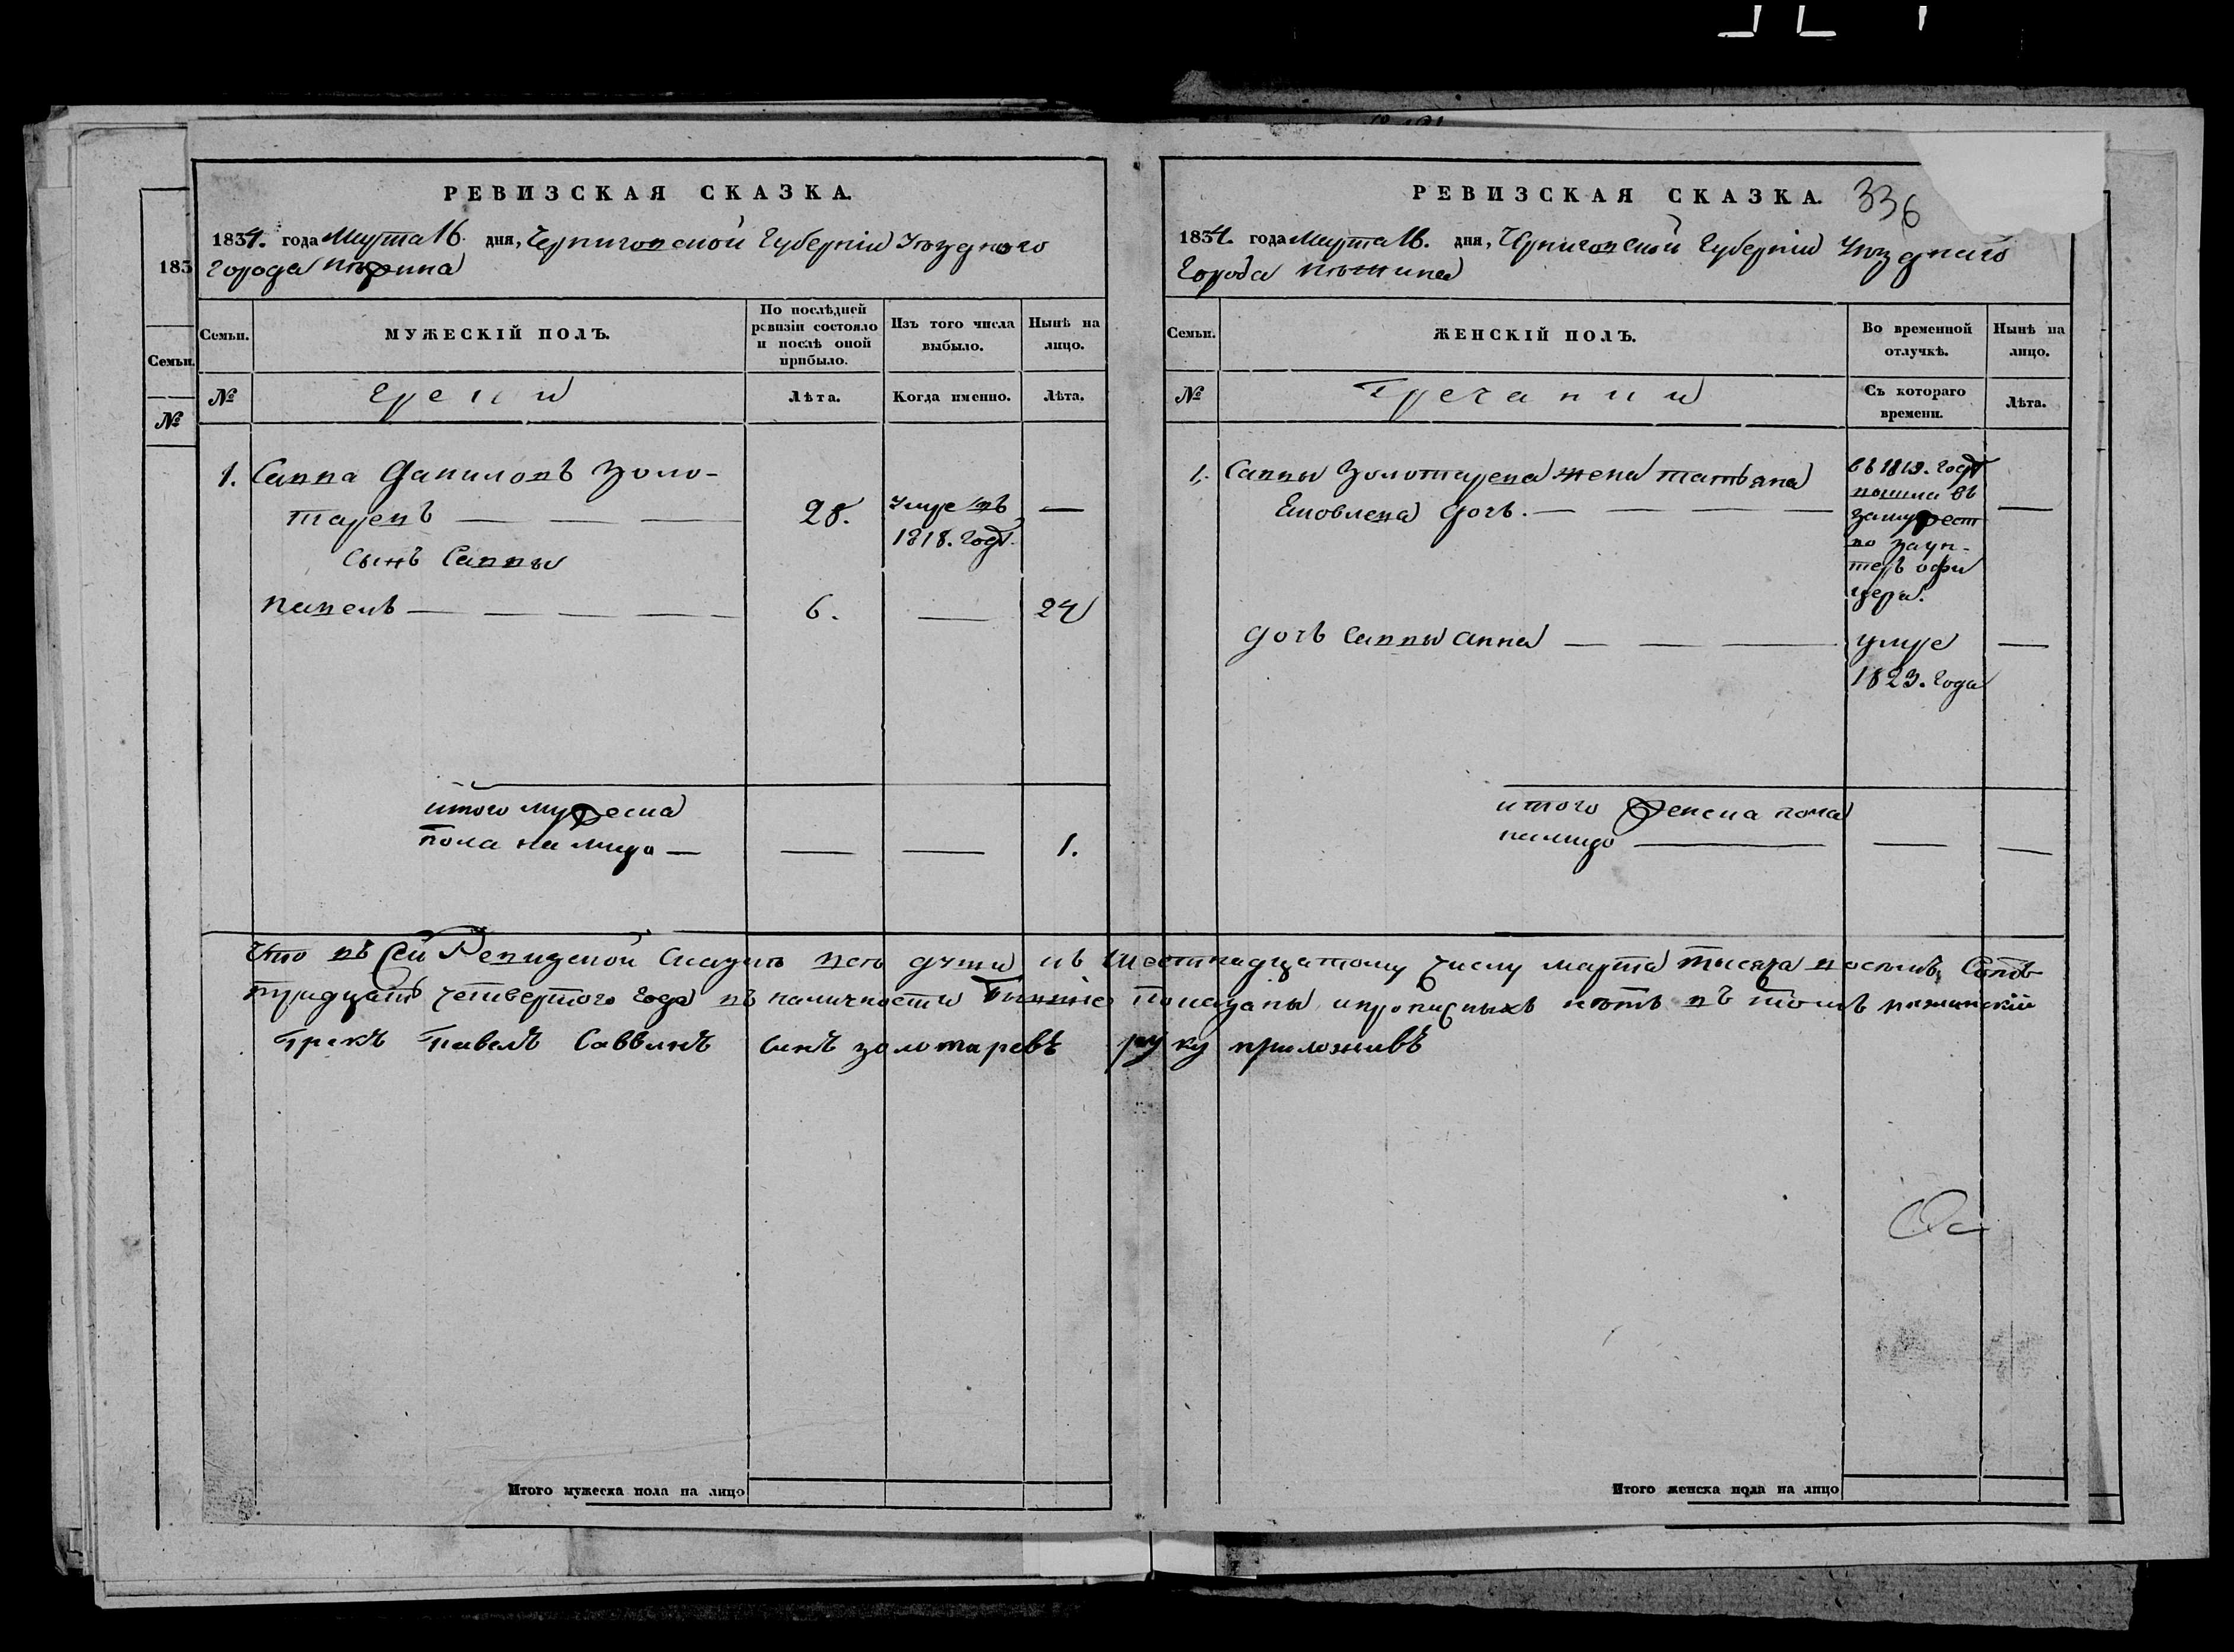 РЕВИЗСКАЯ СКАЗКА.
1834. года Марта 16. дня, Черниговской Губерніи Уѣзднаго
Города Нѣжина
183
Семьи.
№
Семьи.
МУЖЕСКІЙ ПОЛЪ.
По послѣдней ревизіи состояло и послѣ оной прибыло.
Изъ того числа выбыло.
Нынѣ на лицо.
№
Греки
Лѣта.
Когда именно.
Лѣта.
1. Савва Даниловъ Золо-
таревъ
28.
Умре въ
1818. Годѣ.
—
сынъ Саввы
Павелъ
6.
—
24
итого мужеска
пола на лицо —
—
—
1.
РЕВИЗСКАЯ СКАЗКА.
336
1834. года Марта 16. дня, Черниговской Губерніи Уѣзднаго
Города Нѣжина
Семьи.
ЖЕНСКІЙ ПОЛЪ.
Во временной отлучкѣ.
Нынѣ на лицо.
№
Гречанки
Съ котораго времени.
Лѣта.
1. Саввы Золотарева жена татьяна
Яковлева дочь.
въ 1819. годѣ
вышла въ
замужест
во за ун-
теръ офи
цера.
—
дочь Саввы анна
умре
1823. Года
—
итого женска пола
на лицо
—
—
Что въ Сей Ревизской Сказкѣ всѣ души къ Шестнадцатому числу марта тысяча восемь Сотъ
тридцать четвертого Года въ наличности бывшіе Показаны и прописныхъ нѣтъ въ томъ нѣжинскій
грекъ Павелъ Саввинъ Синъ золотаревъ руку приложивъ
Итого мужеска пола на лицо
Итого женска пола на лицо